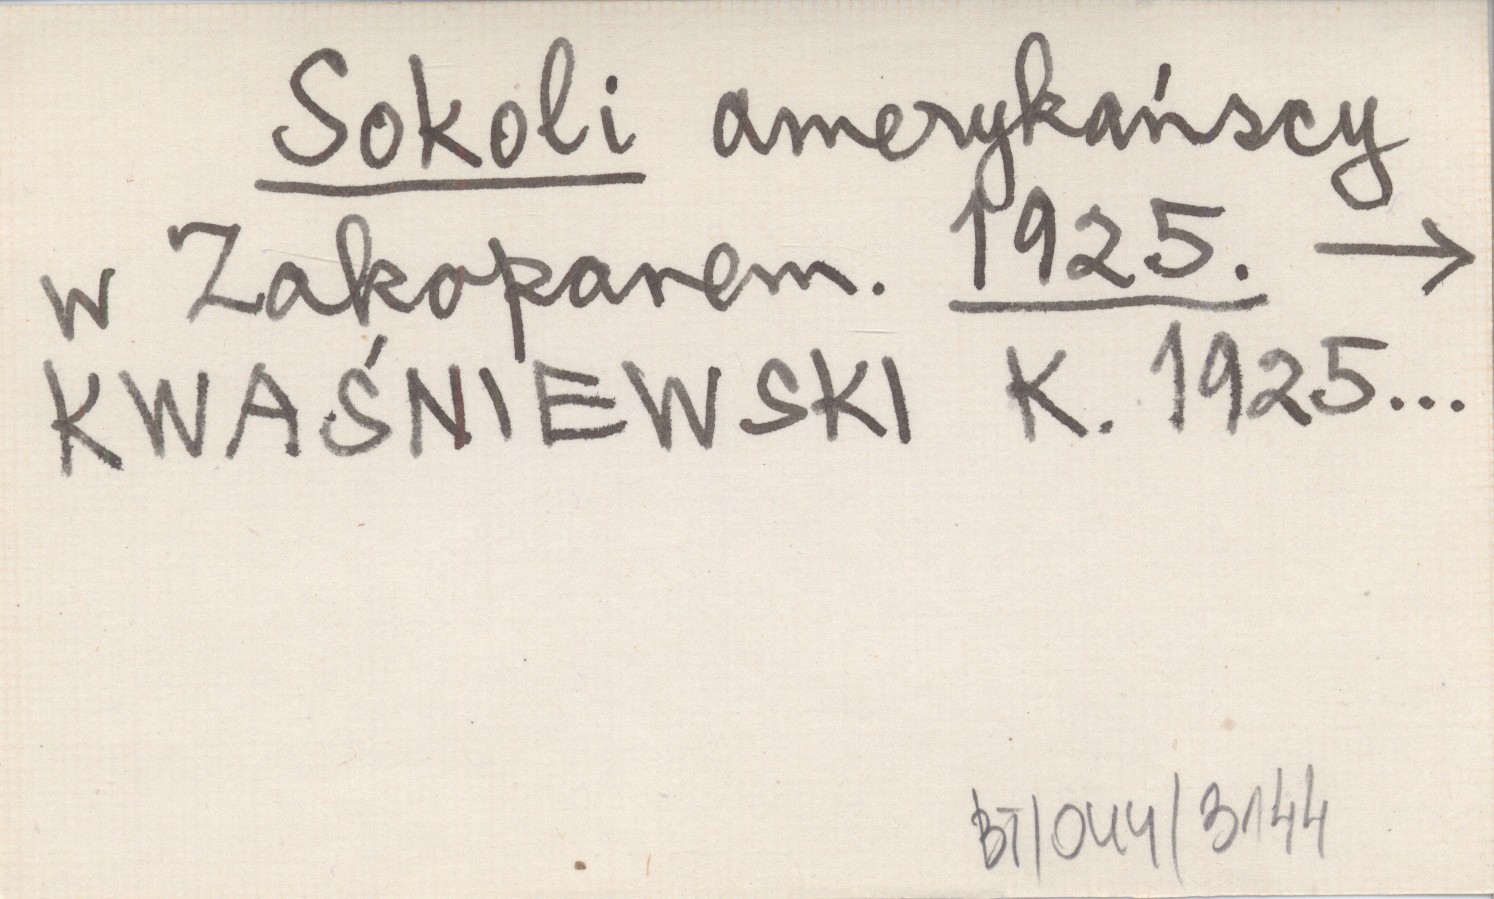 Sokoli amerykańscy
w Zakopanem. 1925. →
KWAŚNIEWSKI K. 1925...
BT/044/3144